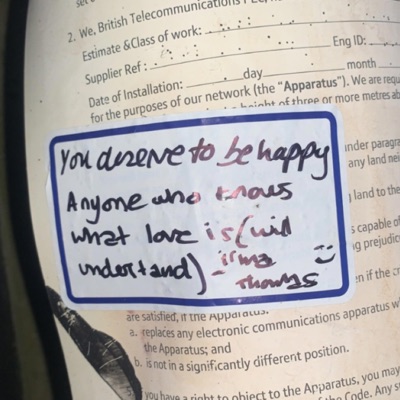 2. We, British Telecommunications
Estimate & Class of work:
Supplier Ref: Eng ID:
Date of Installation: day month
for the purposes of our network (the "Apparatus"). We are requ
height of three or more metres ab
You deserve to be happy
Anyone who knows
what love is (will
understand) - irma
thomas
nder paragra
any land nei
land to the
s capable of
ng prejudic
en if the
are satisfied, if the Apparatus:
a. replaces any electronic communications apparatus w
the Apparatus; and
b. is not in a significantly different position.
you have a right to object to the Apparatus, you may
Code. Any